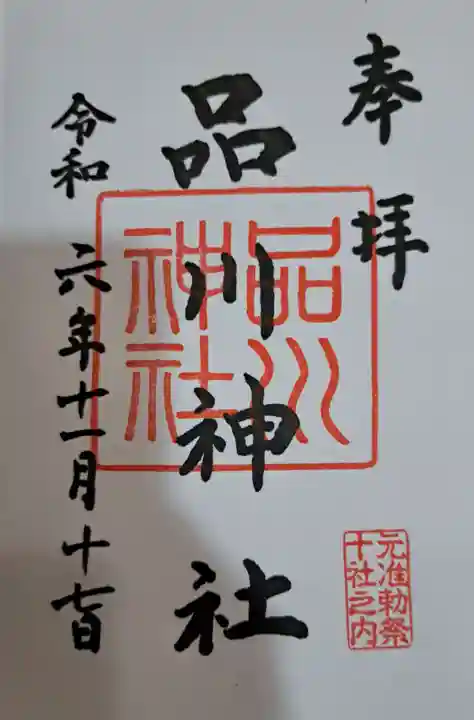 奉拝
元准勅祭
十社之内
品川神社
品川
神社
令和六年十一月十七日